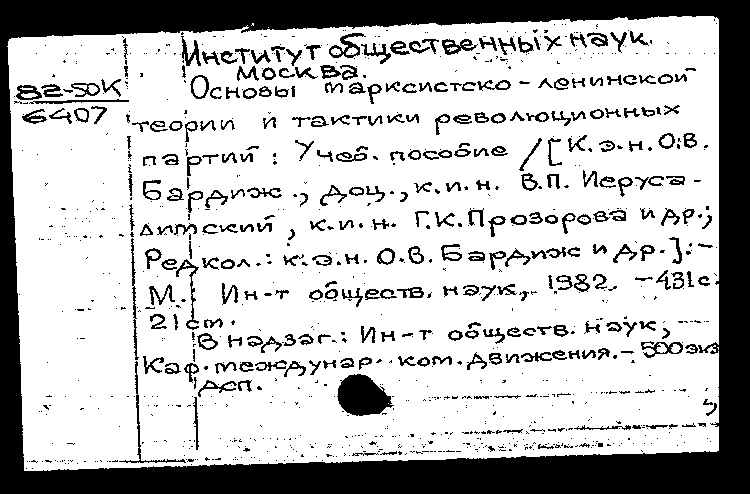 Институт общественных наук.
Москва.
82-50К
6407
Основы марксистско-ленинской
теории и тактики революционных
партий : Учеб. пособие / [К.э.н. О.В.
Бардиж., доц., к.и.н. В.П. Иеруса-
лимский, к.и.н. Г.К. Прозорова и др.;
Редкол.: к.э.н. О.В. Бардиж и др.]. -
М. : Ин-т обществ. наук, 1982. - 431 с.
21 см.
В надзаг.: Ин-т обществ. наук,
Каф. междунар. ком. движения. - 500 экз
деп.